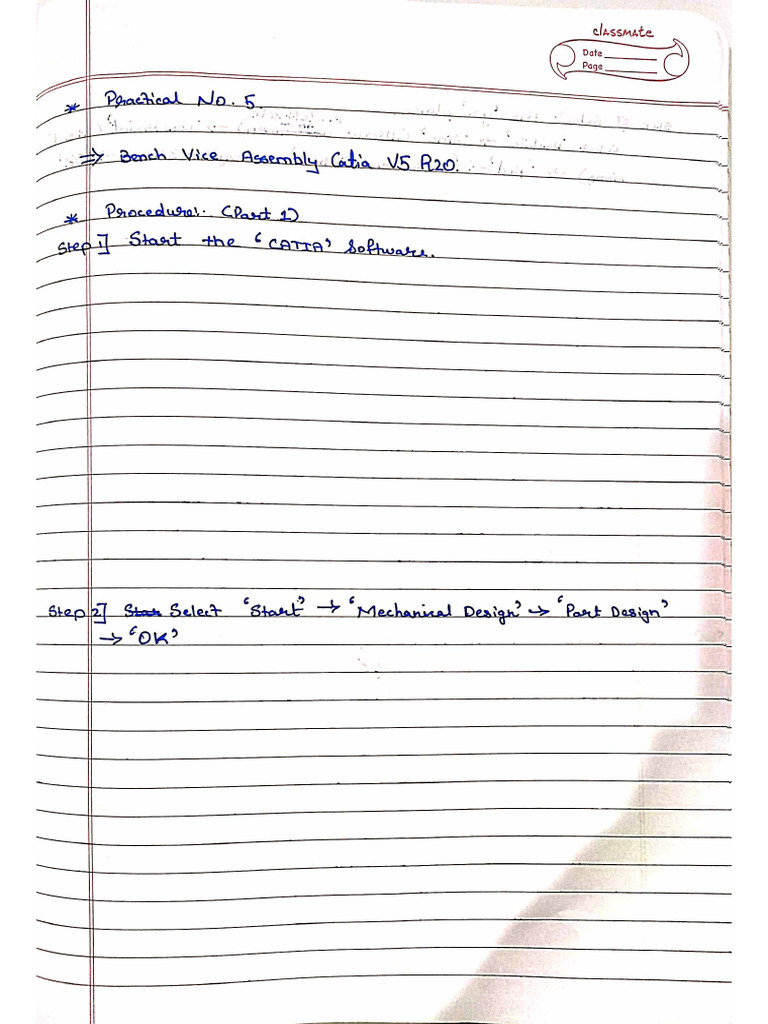 classmate
Date
Page
* Practical No. 5.
⇒ Bench Vice Assembly Catia V5 R20.
* Procedure:. (Part 1)
Step 1] Start the 'CATIA' Software.
Step 2] Star Select 'Start' → 'Mechanical Design' → 'Part Design'
→ 'OK'